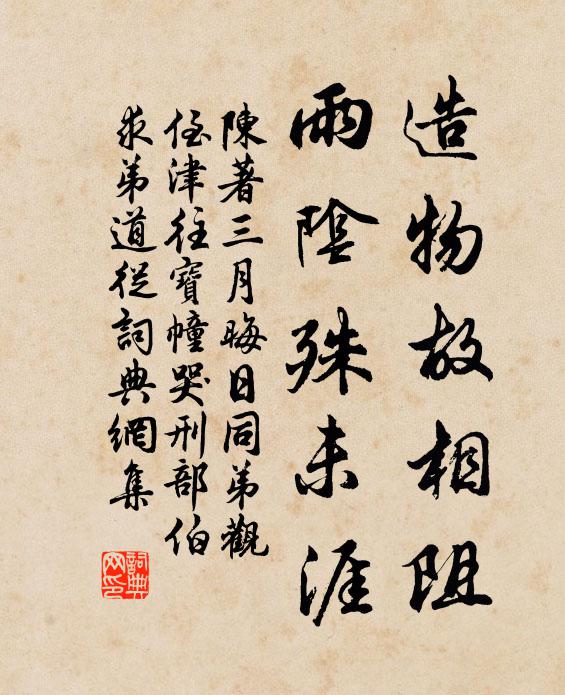 造物故相阻
雨陰殊未涯
陳著三月晦日同弟觀
侄津往寶幢哭刑部伯
求弟道從詞典網集
詞典网印